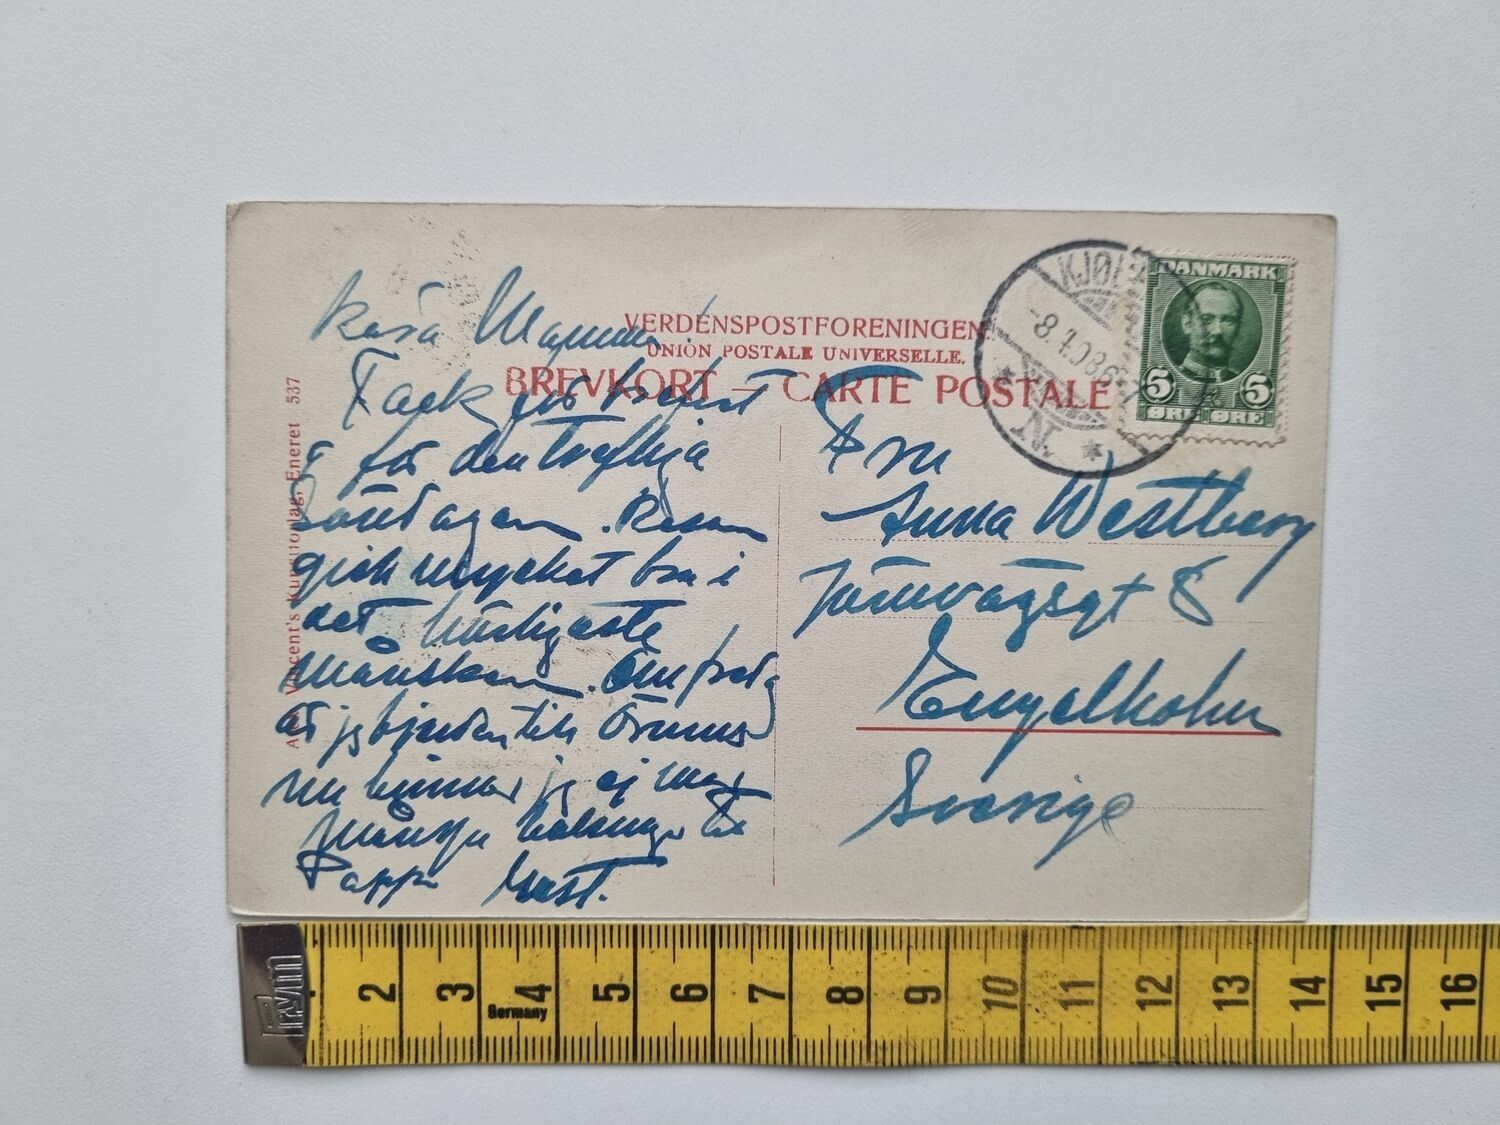 VERDENSPOSTFORENINGEN
UNION POSTALE UNIVERSELLE.
BREVKORT — CARTE POSTALE
Vincent's Kunstforlag, Eneret 537
KJØB
8.1.08 6
N
DANMARK
5 5
ØRE ØRE
Kära Mamma!
Tack för
för den
Söndagen. Resan
gick mycket bra i
det härligaste
månsken.
är jag bjuden till
nu hinner jag ej mer
många hälsningar till
Pappa
Fru
Anna Westberg
Järnvägsgt 8
Engelholm
Sverige
Prym
Germany
2 3 4 5 6 7 8 9 10 11 12 13 14 15 16